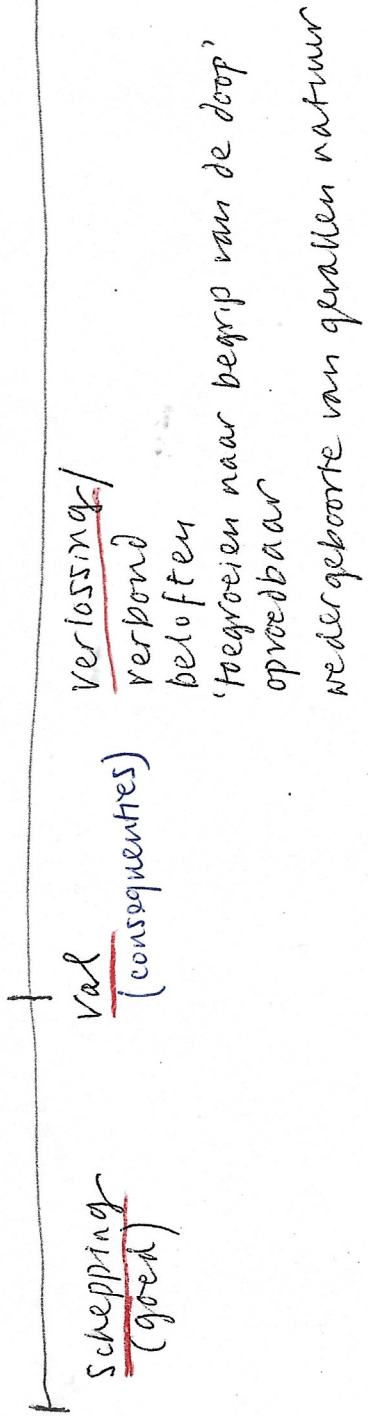 Schepping
(goed)
Val
(consequenties)
Verlossing/
verbond
beloften
'toegroeien naar begrip van de doop'
opvoedbaar
wedergeboorte van gevallen natuur